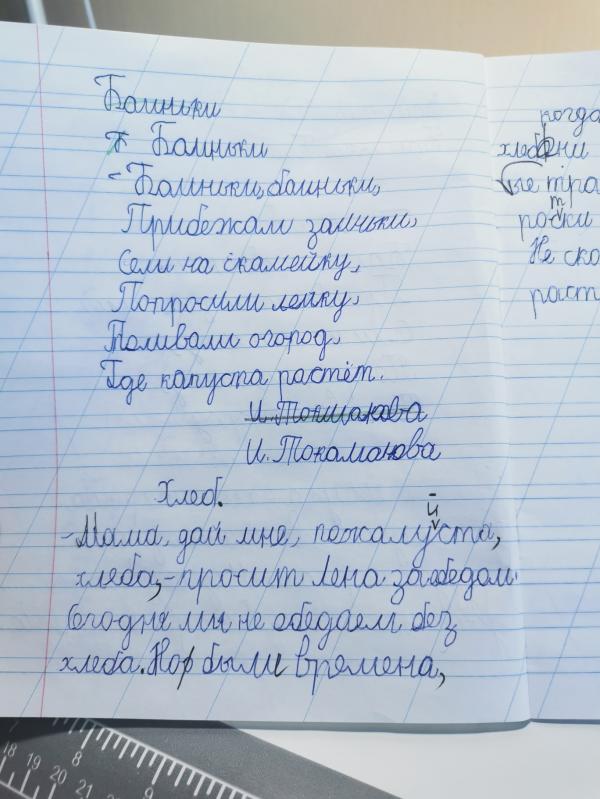 Баиньки
Баиньки
- Баиньки, баиньки,
Прибежали заиньки,
Сели на скамейку,
Попросили лейку,
Поливали огород,
Где капуста растёт.
И. Токмакова
И. Токамакова
Хлеб.
й
- Мама, дай мне, пожалуста,
хлеба, - просит Лена за обедом.
Сегодня мы не обедаем без
хлеба. Но были времена,
когда
хлебни
ые тра
т
роски
Не ско
раст
18 19 20 21 22
8 9